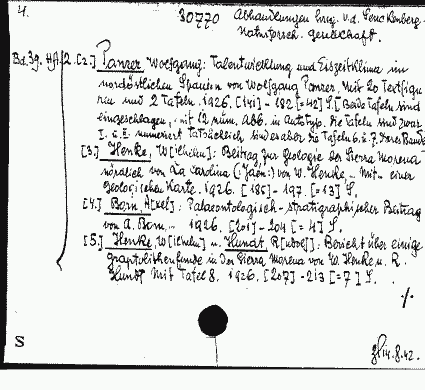 4.
30770 Abhandlungen hrsg. v. d. Senckenberg.
Naturforsch. Gesellschaft.
Bd. 39. Hft. 2. [2.] Panzer Wolfgang: Talentwicklung und Eiszeitklima im
nordöstlichen Spanien von Wolfgang Panzer. Mit 20 Textfigu
ren und 2 Tafeln. 1926. [141] - 182 [= 42] S. [Beide Tafeln sind
eingeschlagen, mit 12 num. Abb. in Autotyp. Die Tafeln sind zwar
I. u. II numeriert tatsächlich sind es aber die Tafeln 6. u. 7. dieses Bandes
[3.] Henke, W[ilhelm]: Beitrag zur Geologie der Sierra Morena
nördlich von La Carolina (Jaén) von W. Henke. - Mit einer
Geologischen Karte. 1926. [185] - 197. [= 13] S.
[4.] Born, A[xel]: Palaeontologisch-stratigraphischer Beitrag
von A. Born. - 1926. [201] - 204 [= 4] S.
[5.] Henke, W[ilhelm] u. Hundt, R[udolf]: Bericht über einige
Graptolithenfunde in der Sierra Morena von W. Henke u. R.
Hundt Mit Tafel 8. 1926. [207] - 213 [= 7] S.
./.
S
14.8.42.